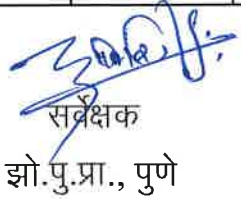 सर्वेक्षक
झो.पु.प्रा., पुणे